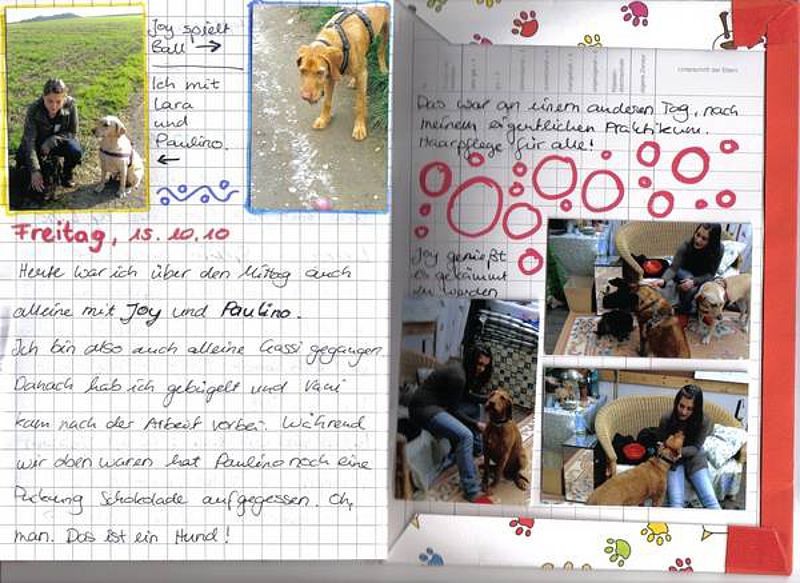 Joy spielt
Ball →
Ich mit
Lara
und
Paulino.
←
Freitag, 15.10.10
Heute war ich über den Mittag auch
alleine mit Joy und Paulino.
Ich bin also auch alleine Gassi gegangen
Danach hab ich gebügelt und Vani
kam nach der Arbeit vorbei. Während
wir oben waren hat Paulino noch eine
Packung Schokolade aufgegessen. Oh,
man. Das ist ein Hund!
Unterschrift der Eltern
Das war an einem anderen Tag, nach
meinem eigentlichen Praktikum.
Haarpflege für alle!
Joy genießt
es gekämmt
zu werden